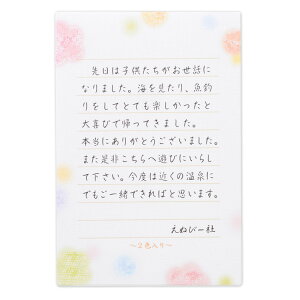 先日は子供たちがお世話に
なりました。海を見たり、魚釣
りをしてとても楽しかったと
大喜びで帰ってきました。
本当にありがとうございました。
また是非こちらへ遊びにいらし
て下さい。今度は近くの温泉に
でもご一緒できればと思います。
えぬびー社
〜2色入り〜